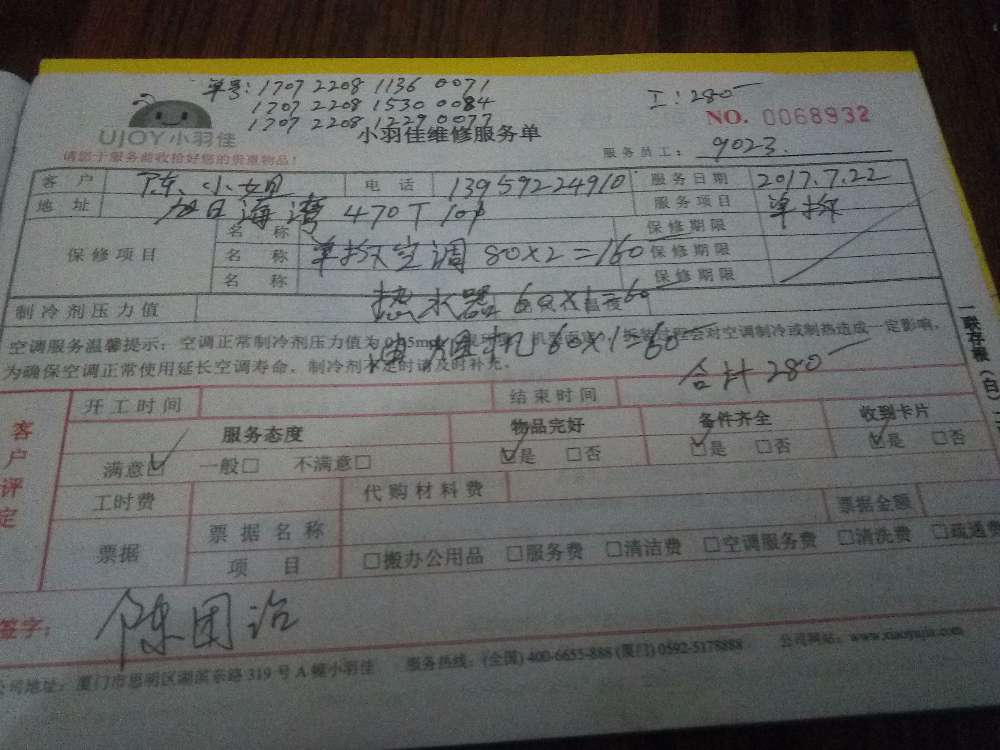 单号: 1707 2208 1136 0071
1707 2208 1530 0084
1707 2208 1229 0077
I: 280
NO. 0068932
UJOY小羽佳
小羽佳维修服务单
请您于服务前收拾好您的贵重物品!
服务员工: 9023.
客户 陈小姐 电话 13959224910 服务日期 2017.7.22
地址 旭日海湾 470 服务项目 单拆
保修项目 名称 保修期限
名称 单拆空调 80X2=160 保修期限
名称 保修期限
制冷剂压力值
热水器 60X1=60
空调服务温馨提示: 空调正常制冷剂压力值为 会对空调制冷或制热造成一定影响,
油烟机 60X1=60
为确保空调正常使用延长空调寿命, 制冷剂不足时请及时补充。
合计280
一联存根(白)
客户评定
开工时间 结束时间
服务态度 物品完好 备件齐全 收到卡片
满意☑ 一般□ 不满意□ ☑是 □否 ☑是 □否 ☑是 □否
工时费 代购材料费
票据 票据名称 票据金额
项目 □搬办公用品 □服务费 □清洁费 □空调服务费 □清洗费 □疏通费
签字:
公司地址: 厦门市思明区湖滨东路 319 号 A 幢小羽佳 服务热线: (全国) 400-6655-888 (厦门) 0592-5178888 公司网站: www.xiaoyujia.com